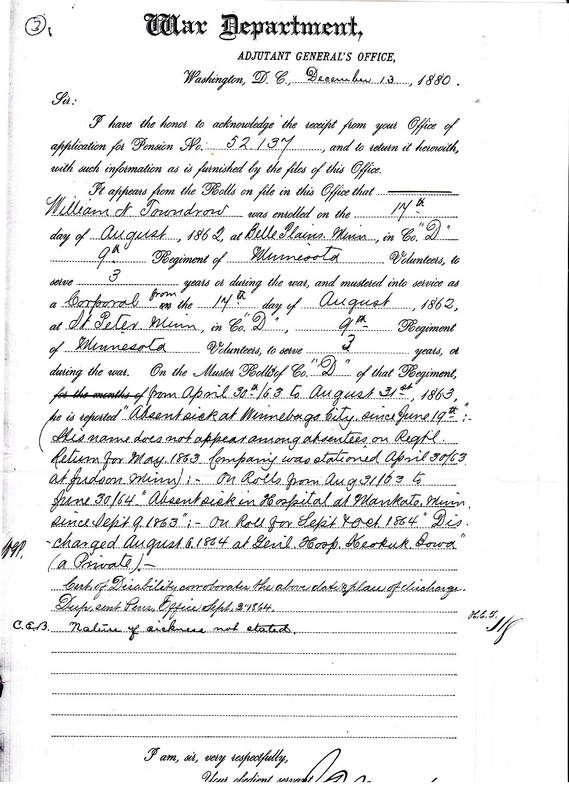 3
War Department,
ADJUTANT GENERAL'S OFFICE,
Washington, D. C., December 13, 1880.
Sir:
I have the honor to acknowledge the receipt from your Office of
application for Pension No. 52137, and to return it herewith,
with such information as is furnished by the files of this Office.
It appears from the Rolls on file in this Office that
William N Towndrow was enrolled on the 17th
day of August, 1862, at Belle Plains. Minn, in Co. "D"
9th Regiment of Minnesota Volunteers, to
serve 3 years or during the war, and mustered into service as
a Corporal from on the 17th day of August, 1862,
at St Peter Minn, in Co. "D", 9th Regiment
of Minnesota Volunteers, to serve 3 years, or
during the war. On the Muster Rolls of Co. "D" of that Regiment,
for the months of from April 30th/63 to August 31st, 1863,
he is reported "Absent sick at Winnebago City. since June 19th":-
(His name does not appear among absentees on Regt'l
Return for May. 1863 Company was stationed April 30/63
at Judson Minn):- On Rolls from Aug 31/63 to
June 30/64. "Absent sick in Hospital at Mankato. Minn
since Sept 9. 1863":- On Roll for Sept & Oct 1864 "Dis-
charged August 6. 1864 at Genl. Hosp. Keokuk Iowa"
(a Private).-
Cert. of Disability corroborates the above date & place of discharge.
Dup. sent Pens. Office Sept. 2 1864.
C.E.B. Nature of sickness not stated.
I am, sir, very respectfully,
Your obedient servant